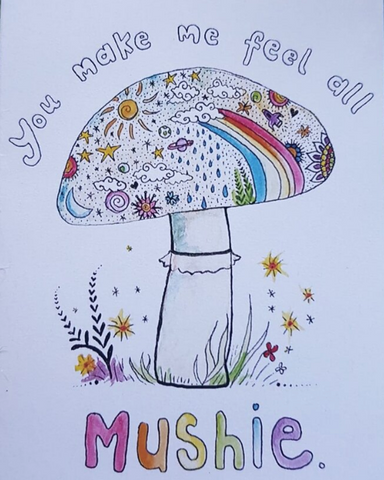 You make me feel all
Mushie.